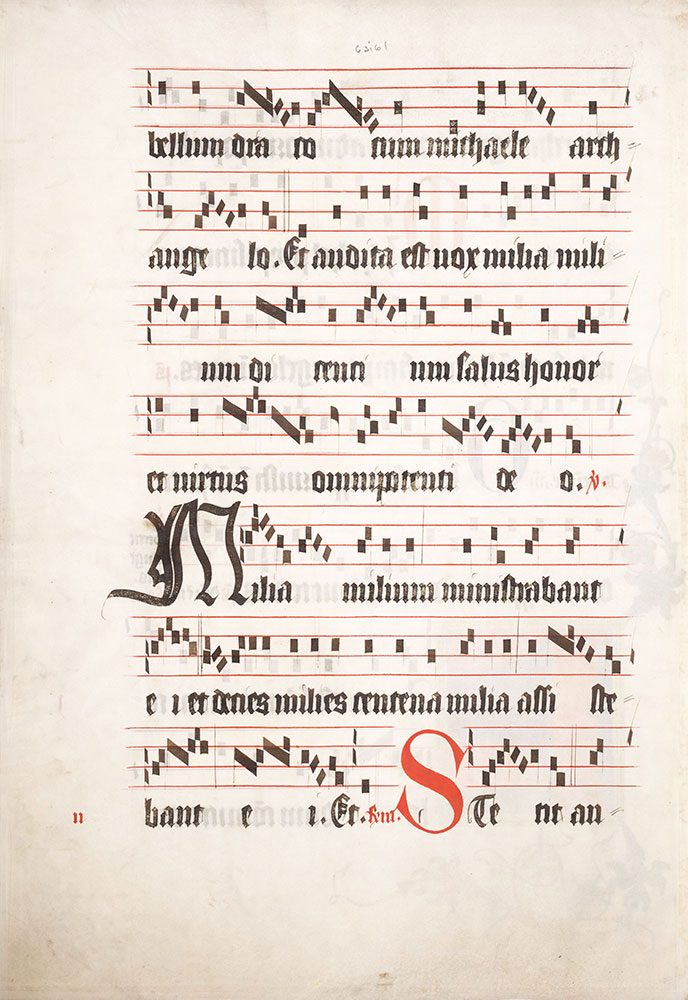 bellum dra co cum michaele arch
ange lo. Et audita est uox milia mili =
um di centi um salus honor
et uirtus omnipotenti de o. v.
Milia milium ministrabant
e i et decies milies centena milia assi ste
ii bant e i. Et. STe tit an =